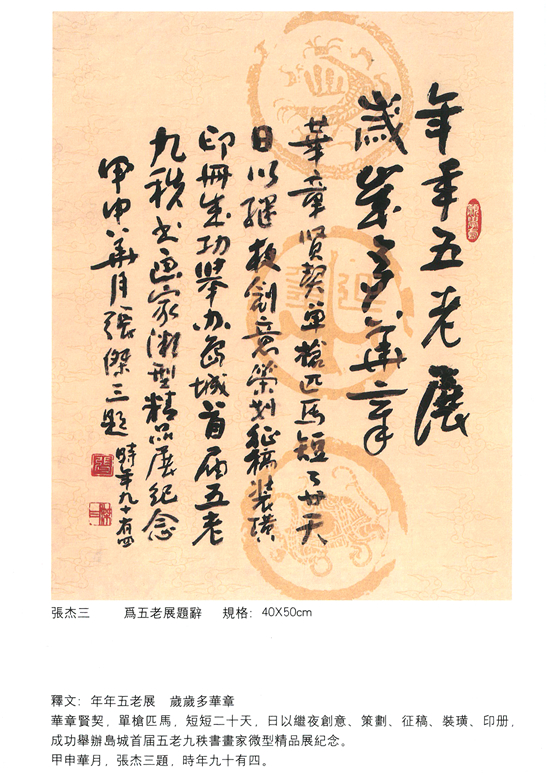 年年五老展
歲歲多華章
華章賢契單槍匹馬短短廿天
日以繼夜創意策划征稿裝璜
印册成功舉办島城首届五老
九秩书画家微型精品展纪念
甲申华月張傑三题
時年九十有四
張杰三 爲五老展題辭 規格：40X50cm
釋文：年年五老展 歲歲多華章
華章賢契，單槍匹馬，短短二十天，日以繼夜創意、策劃、征稿、裝璜、印册，
成功舉辦島城首届五老九秩書畫家微型精品展紀念。
甲申華月，張杰三題，時年九十有四。